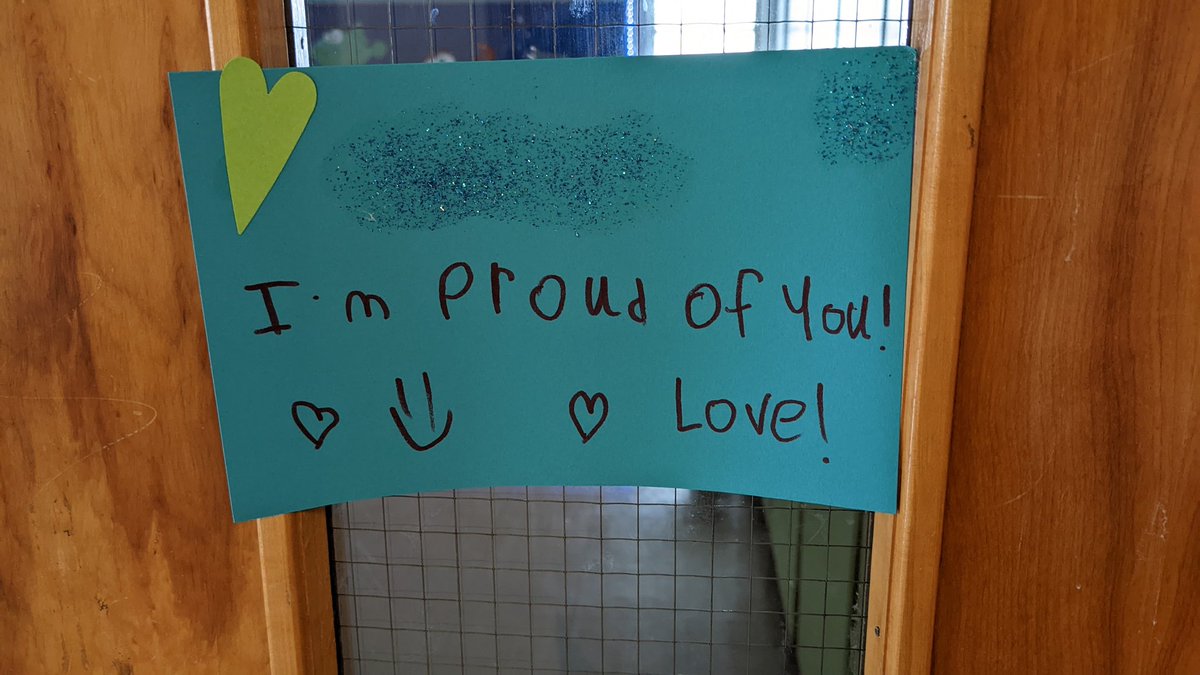 I'm Proud of You!
Love!